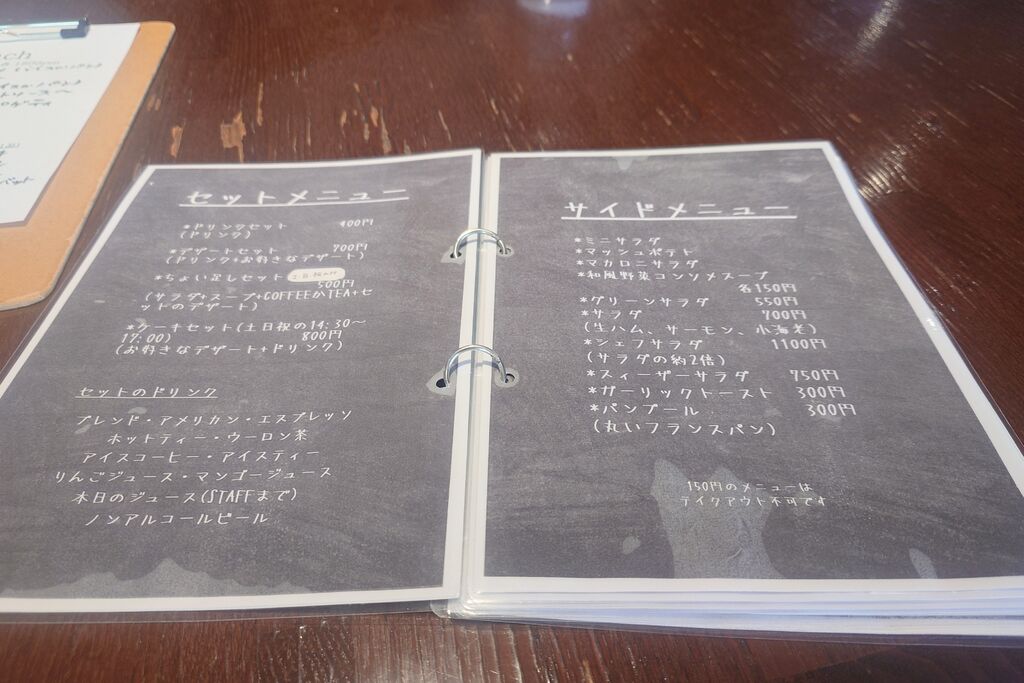 セットメニュー
*ドリンクセット 400円
(ドリンク)
*デザートセット 700円
(ドリンク+お好きなデザート)
*ちょい足しセット
500円
(サラダ+スープ+COFFEEかTEA+セ
ットのデザート)
*ケーキセット(土日祝の14:30〜
17:00) 800円
(お好きなデザート+ドリンク)
セットのドリンク
ブレンド・アメリカン・エスプレッソ
ホットティー・ウーロン茶
アイスコーヒー・アイスティー
りんごジュース・マンゴージュース
本日のジュース(STAFFまで)
ノンアルコールビール
サイドメニュー
*ミニサラダ
*マッシュポテト
*マカロニサラダ
*和風野菜コンソメスープ
各150円
*グリーンサラダ 550円
*サラダ 900円
(生ハム、サーモン、小海老)
*シェフサラダ 1100円
(サラダの約2倍)
*スィーザーサラダ 950円
*ガーリックトースト 300円
*パンブール 300円
(丸いフランスパン)
150円のメニューは
テイクアウト不可です